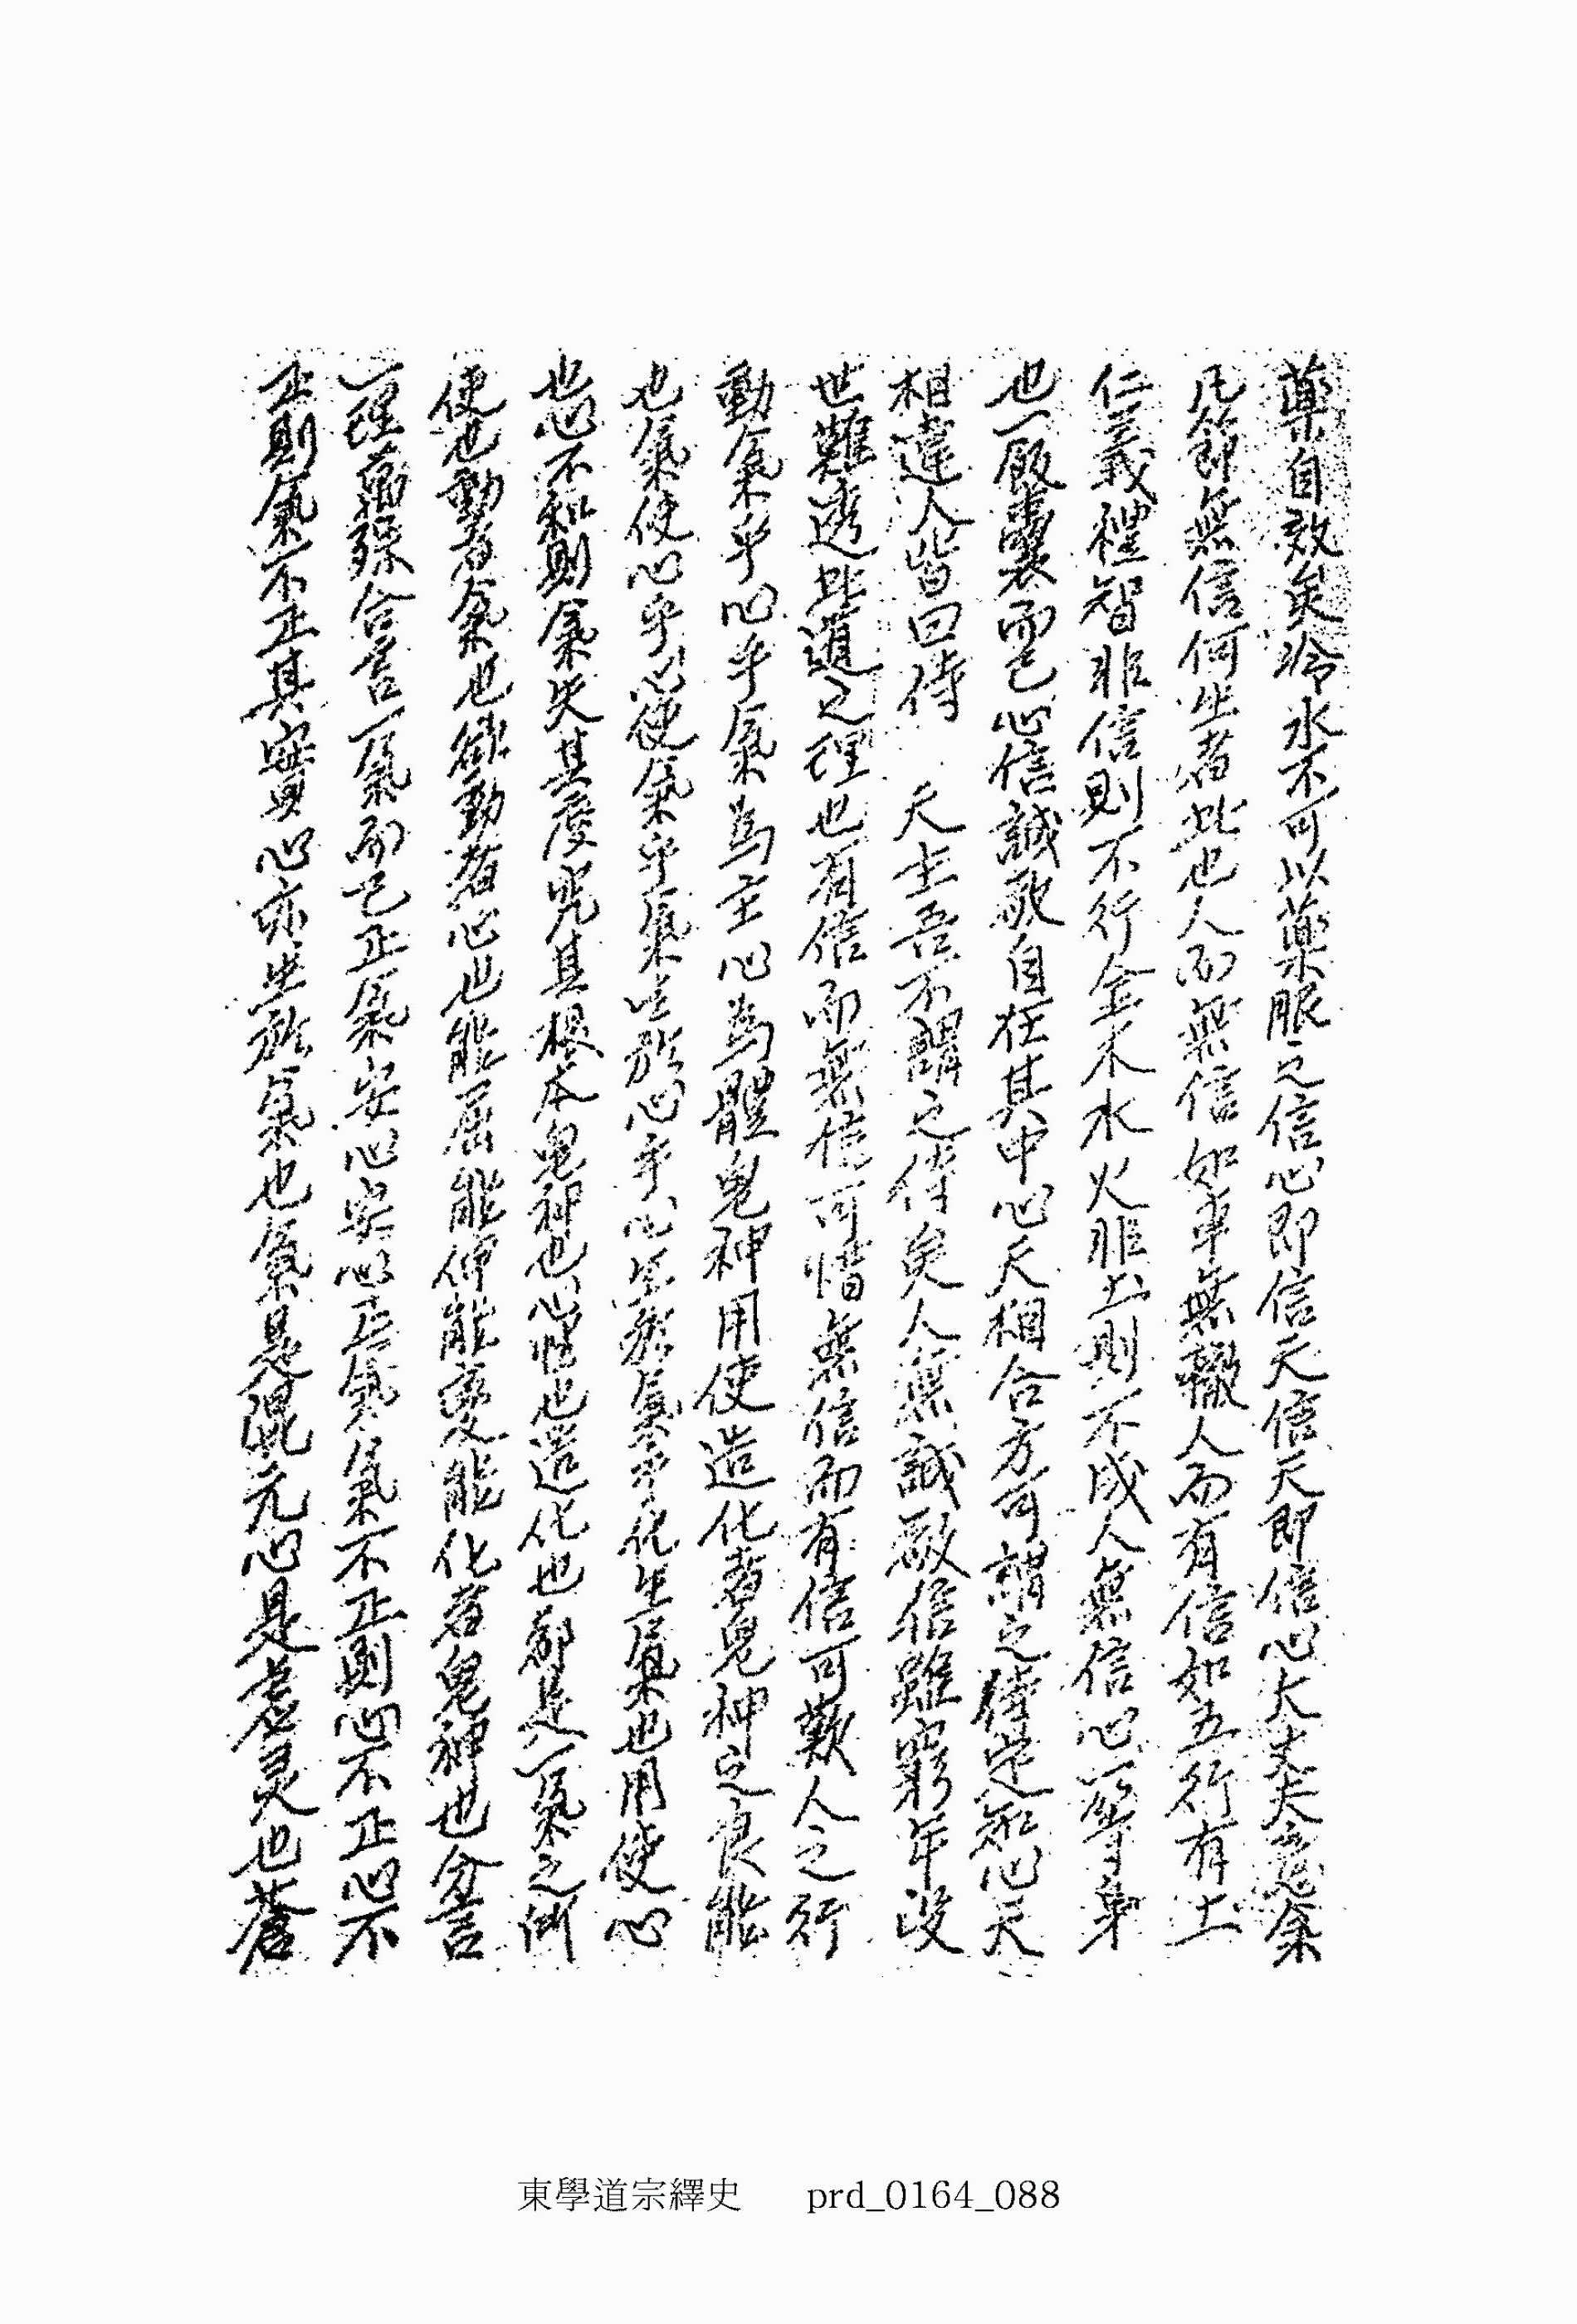 藥自效矣冷水不可以藥服之信心即信天信天即信心大丈夫意余
凡節無信何生者此也人而無信如車無轍人而有信如五行有土
仁義禮智非信則不行金木水火非土則不成人無信心一等身
也一飯囊而已心信誠敬自在其中心天相合方可謂之侍定知心天
相違人皆曰侍 天主吾不謂之侍矣人無誠敬信雖窮年改
世難透此道之理也有信而無信可惜無信而有信可歎人之行
動氣乎心乎氣為主心為體鬼神用使造化者鬼神之良能
也氣使心乎心使氣乎氣生於心乎心生於氣乎化生氣也用使心
也心不和則氣失其度究其根本鬼神也心性也造化也都是一氣之所
使也動者氣也欲動者心也能屈能伸能變能化者鬼神也分言
一理萬殊合言一氣而已正氣安心安心正氣氣不正則心不正心不
正則氣不正其實心亦生於氣也氣是混元心是虛灵也蒼
東學道宗繹史 prd_0164_088